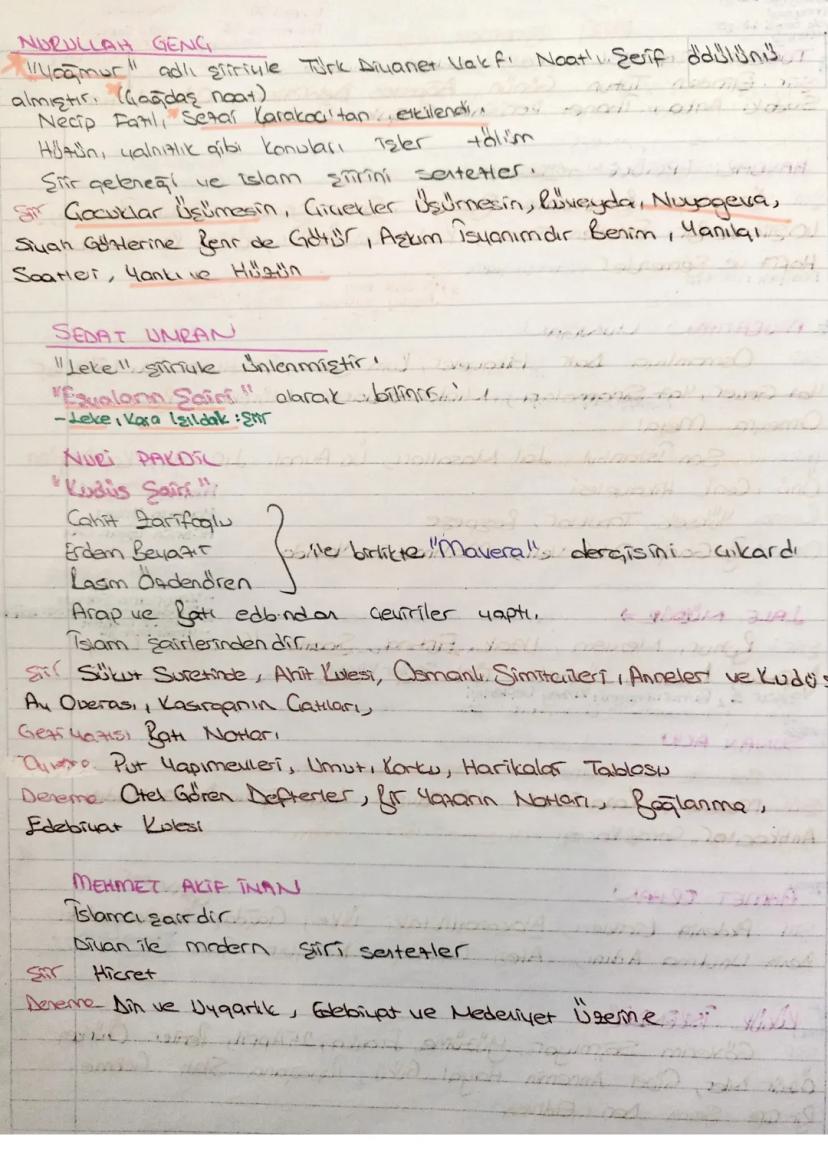 NURULLAH GENÇ
"Yağmur" adlı şiiriyle Türk Diyanet Vakfı Naat-ı Şerif ödülünü
almıştır. (Çağdaş naat)
Necip Fazıl, Sezai Karakoç'tan etkilendi.
Hüzün, yalnızlık gibi konuları işler +ölüm
Şiir geleneği ve islam şiirini sentezler.
Şiir Çocuklar Üşümesin, Çiçekler Üşümesin, Rüveyda, Nuyageva,
Siyah Gözlerine Beni de Götür, Aşkım İsyanımdır Benim, Yanılgı
Saatleri, Yankı ve Hüzün
SEDAT UMRAN
"Leke" şiiriyle ünlenmiştir.
"Eşyaların Şairi" olarak bilinir.
- Leke, Kara Işıldak : Şiir
NURİ PAKDİL
"Kudüs Şairi"
Cahit Zarifoğlu
Erdem Beyazıt
Rasim Özdenören
ile birlikte "Mavera" dergisini çıkardı
Arap ve Batı edb.ndan çeviriler yaptı.
İslam şairlerindendir.
Şiir Sükut Suretinde, Ahit Kulesi, Osmanlı Simitçileri, Anneler ve Kudüs
Ay Operası, Kasırganın Çatıları,
Gezi Yazısı Batı Notları
Tiyatro Put Yapımevleri, Umut, Korku, Harikalar Tablosu
Deneme Otel Gören Defterler, Bir Yazarın Notları, Bağlanma,
Edebiyat Kulesi
MEHMET AKİF İNAN
İslamcı şairdir.
Divan ile modern şiiri sentezler
Şiir Hicret
Deneme Din ve Uygarlık, Edebiyat ve Medeniyet Üzerine